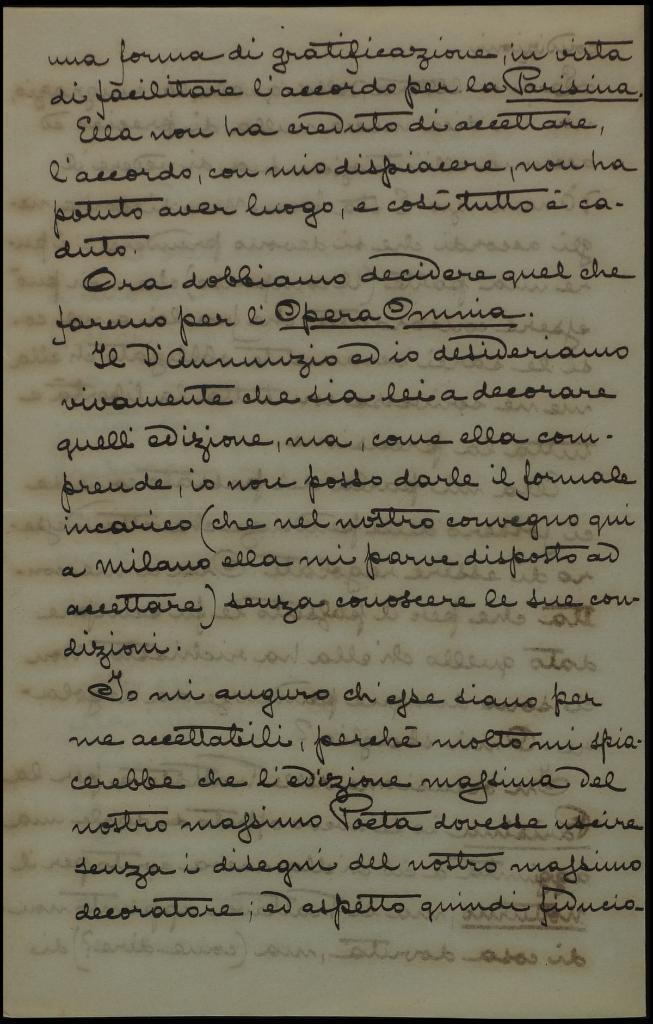 una forma di gratificazione, in vista
di facilitare l'accordo per la Parisina.
Ella non ha creduto di accettare,
l'accordo, con mio dispiacere, non ha
potuto aver luogo, e così tutto è ca-
duto.
Ora dobbiamo decidere quel che
faremo per l'Opera Omnia.
Il D'Annunzio ed io desideriamo
vivamente che sia lei a decorare
quell'edizione, ma, come ella com-
prende, io non posso darle il formale
incarico (che nel nostro convegno qui
a Milano ella mi parve disposto ad
accettare) senza conoscere le sue con-
dizioni.
Io mi auguro ch'esse siano per
me accettabili, perché molto mi spia-
cerebbe che l'edizione massima del
nostro massimo Poeta dovesse uscire
senza i disegni del nostro massimo
decoratore; ed aspetto quindi fiducio-